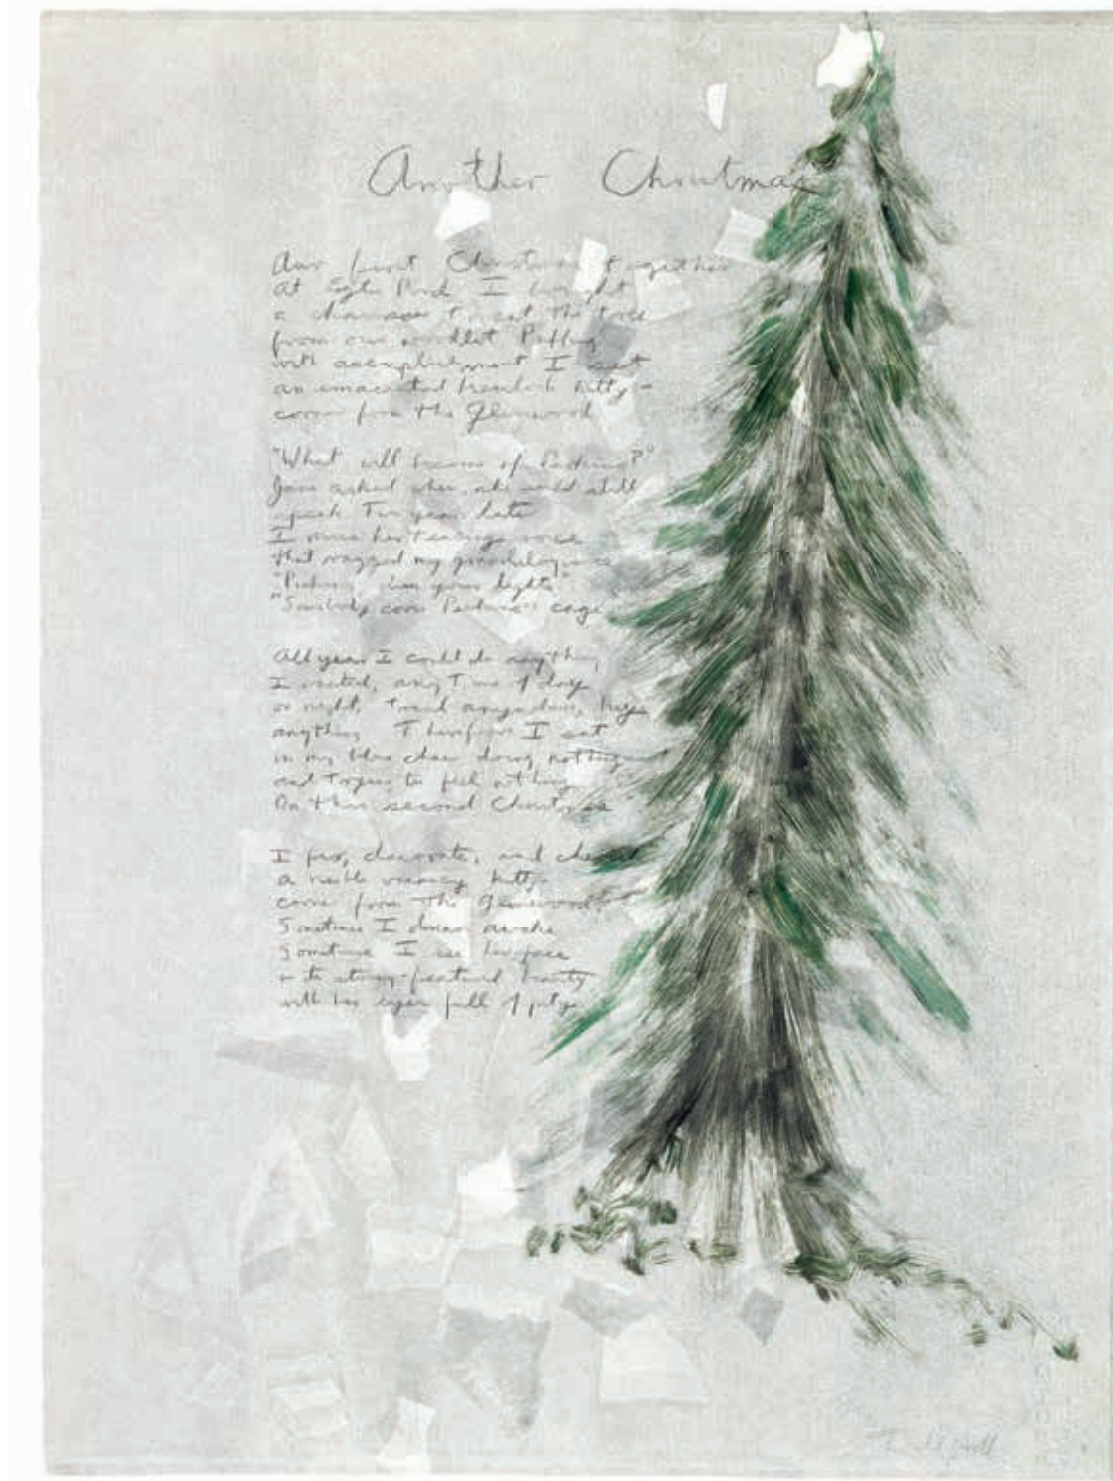 Another Christmas
Our first Christmas together
at Eagle Pond I bought
a chainsaw to cut the tree
from our woodlot Puffing
with accomplishment I set
an emaciated hemlock kitty-
corner from the Glenwood
"What will become of Perkins?"
Jane asked when she could still
speak Two years later
I miss her teasing voice
that razzed my grandiloquence
"Perkins, dim your lights"
"Somebody cover Perkins's cage
All year I could do anything
I wanted, any time of day
or night, travel anywhere, buy
anything Therefore I sat
in my blue chair doing nothing
and trying to feel nothing
On this second Christmas
I decorate, and
a visible vacancy kitty-
corner from the Glenwood
Sometimes I dream awake
Sometimes I see her face
its strong-featured beauty
with her eyes full of pity